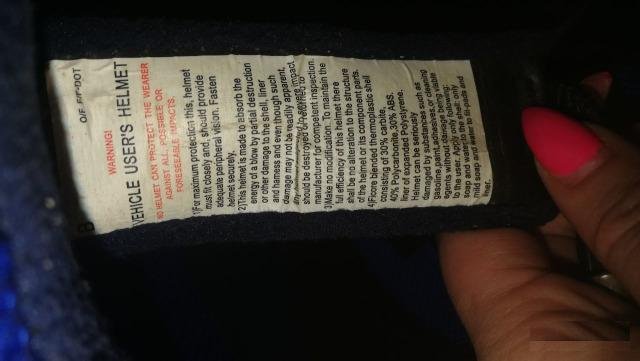 WARNING!
VEHICLE USER'S HELMET
NO HELMET CAN PROTECT THE WEARER
AGAINST ALL POSSIBLE OR
FORESEEABLE IMPACTS.
1)For maximum protection this, helmet
must fix closely and, should provide
adequate peripheral vision. Fasten
helmet securely.
2)This helmet is made to absorb the
energy of a blow by partial destruction
or other damage to the shell, liner
and harness and even though such
damage may not be readily apparent,
should be destroyed or
manufacturer for competent inspection.
3)Make no modification. To maintain the
full efficiency of this helmet there
shall be no alteration to the structure
of the helmet or its component parts.
4)Ficore blended thermoplastic shell
consisting of 30% canife,
40% Polycarbonate, 30% ABS.
liner of expanded Polystyrene.
Helmet can be seriously
damaged by substances such as
gasoline, paint, adhesives, or cleaning
agents without damage being visible
to the user. Apply only following:
soap and water on shell; only
mild soap and water on fit-pads and
liner.